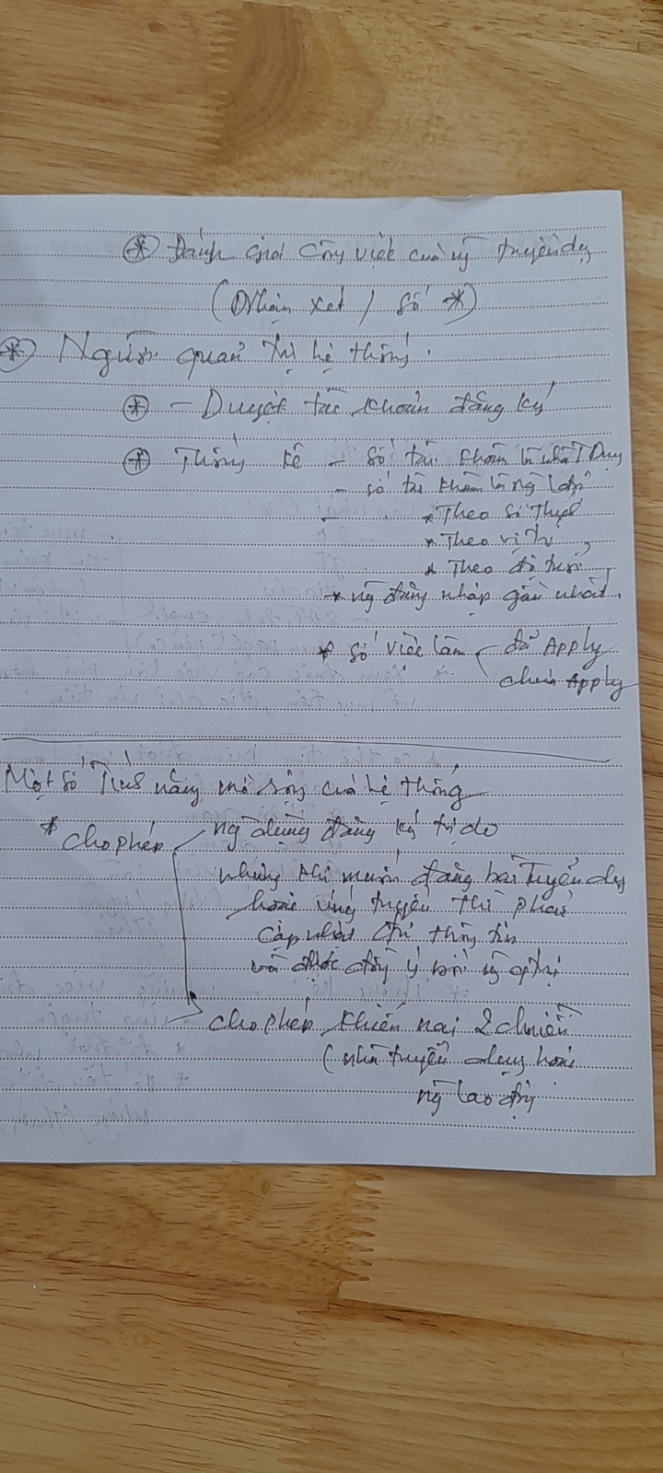 * Đánh giá công việc của ng tuyển dụng
(Nhận xét / Số *)
* Người quản trị hệ thống.
* - Duyệt tài khoản đăng ký
* Thống kê - Số tài khoản là nhà T Dụng
- số tài khoản là ng lđộ
- * Theo Sở Thích
* Theo vị trí
* Theo độ tuổi
* ng đăng nhập gần nhất.
* số việc làm - đã Apply
chưa Apply
Một số Tính năng mở rộng của hệ thống
* cho phép ng dùng đăng ký tự do
nhưng khi muốn đăng bài Tuyển dụng
hoặc ứng tuyển thì phải
cập nhật đủ thông tin
và được đồng ý bởi ng qtrị
cho phép khiếu nại 2 chiều
(nhà tuyển dụng hoặc
ng lao động